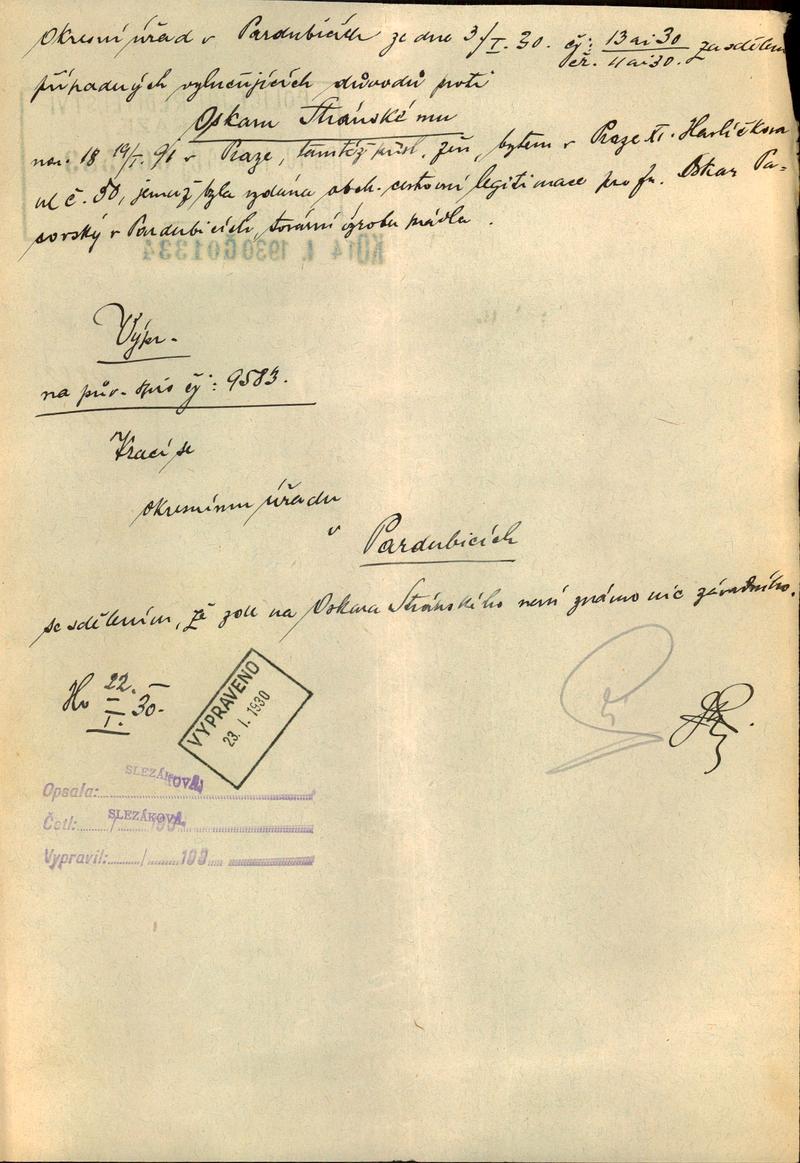 Okresní úřad v Pardubicích ze dne 3/I. 30. čj: 13 ai 30 za sdělení
čř. 4 ai 30.
případných vylučujících důvodů proti
Oskaru Stránskému
nar. 18 19/I. 91 v Praze, tamtéž přísl. žen, bytem v Praze XI. Havlíčkova
ul č. 50, jemuž byla vydána obch. cestovní legitimace pro fu. Oskar Pa-
sovský v Pardubicích, tovární výroba prádla.
14 I. 1930 001334
Výpr.
na pův. spis čj: 9583.
Vrací se
okresnímu úřadu
v
Pardubicích
se sdělením, že zde na Oskara Stránského není známo nic závadného.
22.
I. 30.
VYPRAVENO
23. I. 1930
SLEZÁKOVÁ
Opsala:
SLEZÁKOVÁ
Četl: / 193
Vypravil: / 193